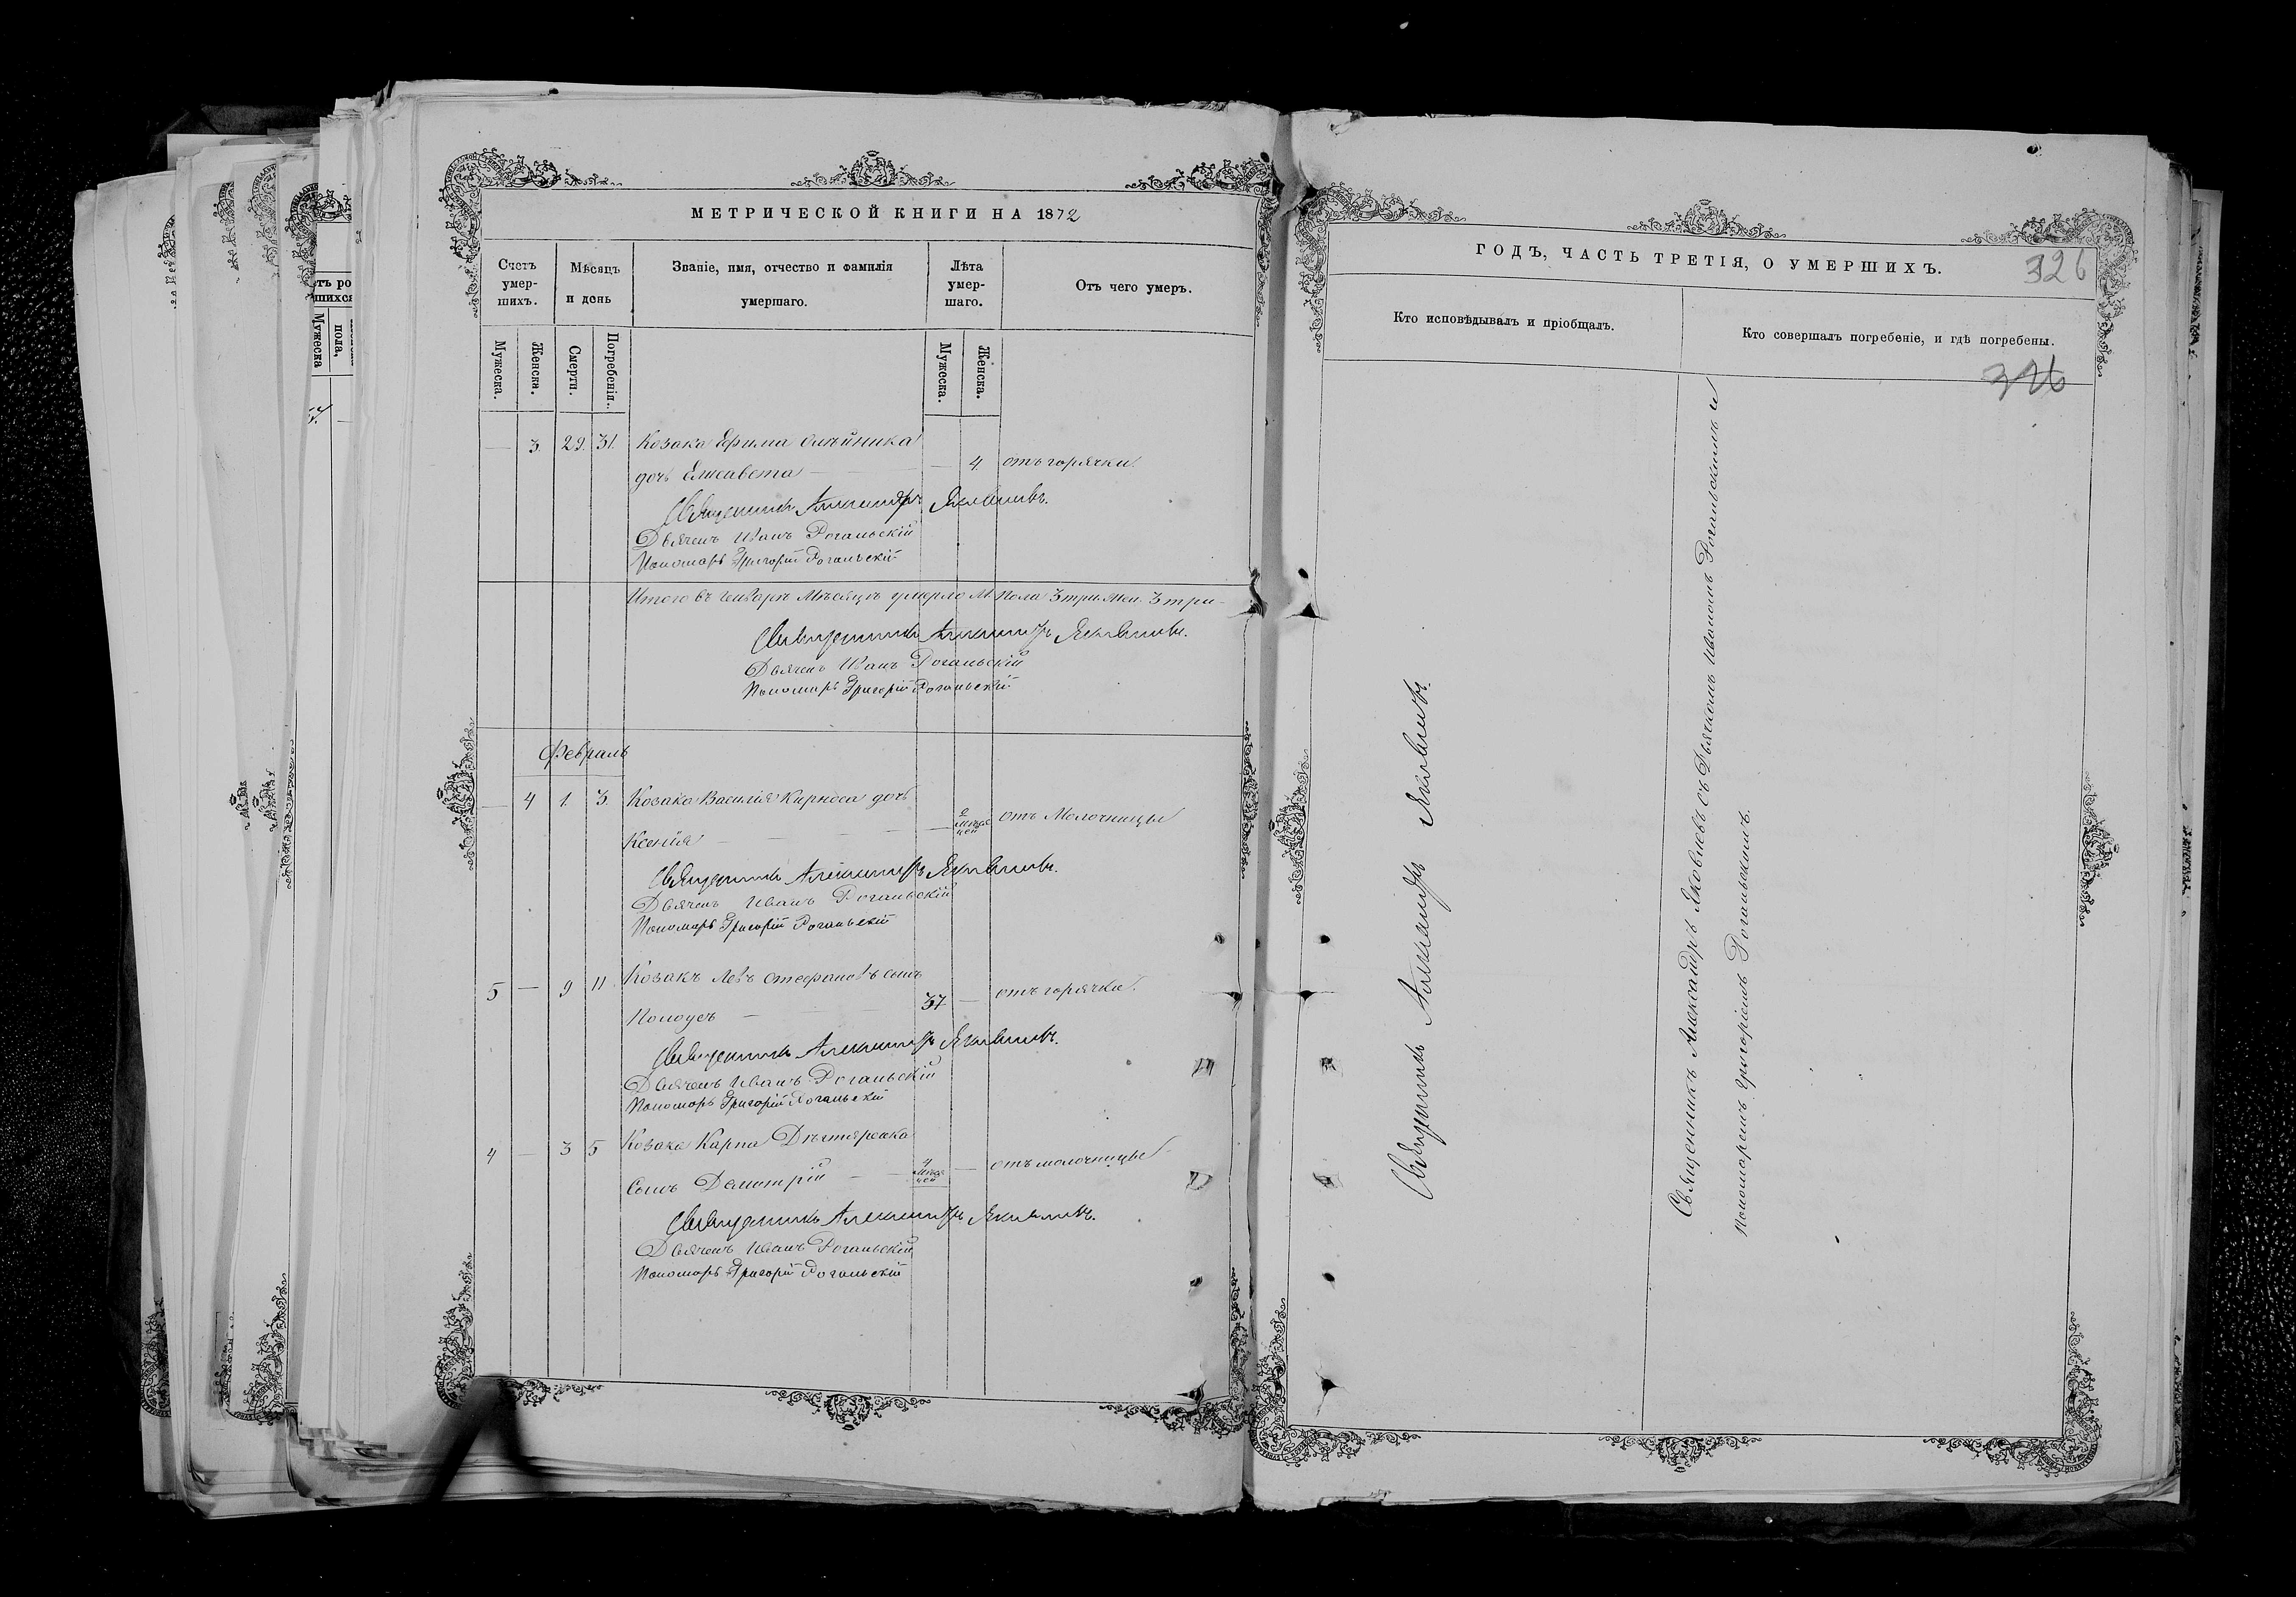 МЕТРИЧЕСКОЙ КНИГИ НА 1872
Счетъ умер-шихъ.
Мѣсяцъ и день
Званіе, имя, отчество и фамилія умершаго.
Лѣта умер-шаго.
Отъ чего умеръ.
Мужеска.
Женска.
Смерти.
Погребенія.
Мужеска.
Женска.
— 3 29. 31. Козака Ефима Олѣйника
дочь Елисавета — — 4. отъ горячки.
Священникъ Александръ Яковлевъ.
Дьячекъ Иванъ Рогальскій
Пономарь Григорій Рогальскій
Итого въ Генварѣ Мѣсяцѣ умерло М. пола 3 три. Жен. 3 три —
Священникъ Александръ Яковлевъ.
Дьячекъ Иванъ Рогальскій
Пономарь Григорій Рогальскій
Февраль
— 4 1. 3. Козака Василія Кирноса дочь
Ксенія — — — мѣся цей отъ Молочницы
Священникъ Александръ Яковлевъ.
Дьячекъ Иванъ Рогальскій
Пономарь Григорій Рогальскій
5 — 9 11 Козакъ Левъ Стефановъ сынъ
— — 37 — отъ горячки.
Священникъ Александръ Яковлевъ.
Дьячекъ Иванъ Рогальскій
Пономарь Григорій Рогальскій
4 — 3 5 Козака Карпа Дѣхтяренка
Сынъ Димитрій — 4 мѣся цей — отъ молочницы
Священникъ Александръ Яковлевъ.
Дьячекъ Иванъ Рогальскій
Пономарь Григорій Рогальскій
ГОДЪ, ЧАСТЬ ТРЕТІЯ, О УМЕРШИХЪ.
326
Кто исповѣдывалъ и пріобщалъ.
Кто совершалъ погребеніе, и гдѣ погребены.
326
Священникъ Александръ Яковлевъ.
Священникъ Александръ Яковлевъ съ Дьячкомъ Иваномъ Рогальскимъ и
Пономаремъ Григоріемъ Рогальскимъ.
тъ ро
шихся
Мужеска
пола,